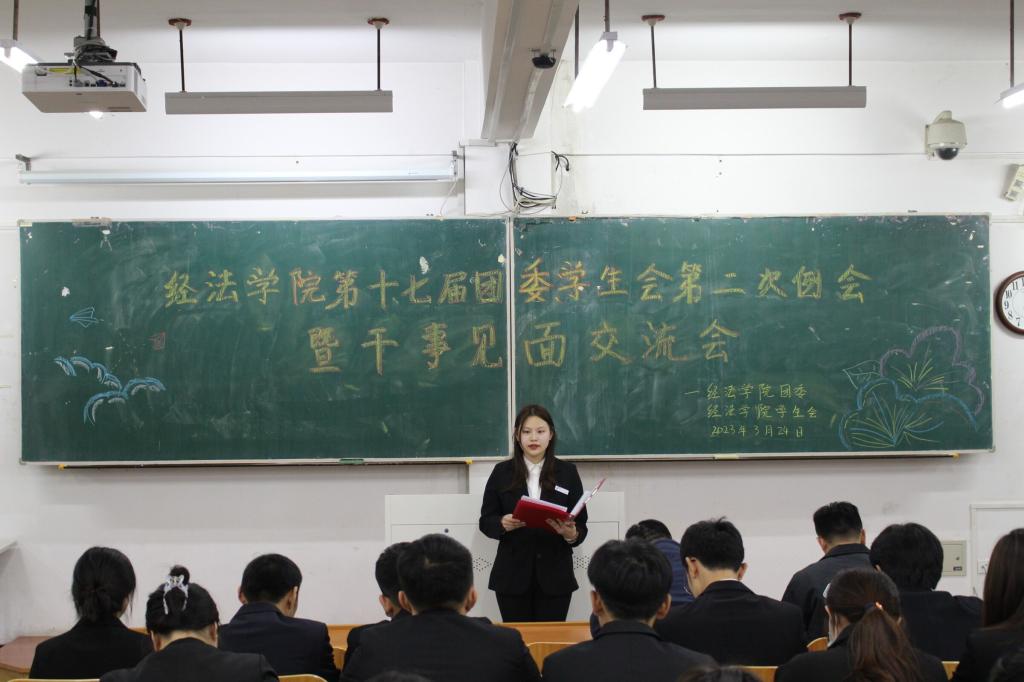 经法学院第十七届团委学生会第二次例会
暨干事见面交流会
一经法学院团委
经法学院学生会
2023年3月24日